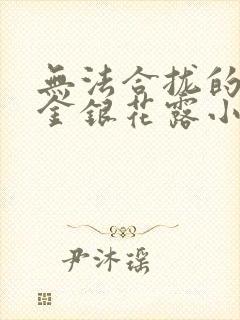 無法合拢的
金銀花露小
尹沐瑶